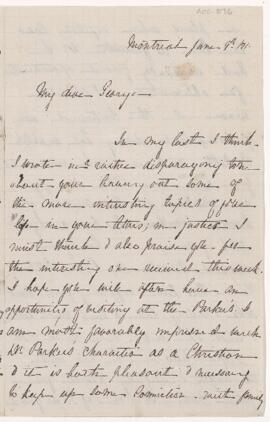 Montreal June 9th
My dear George
In my last I think
I wrote in rather disparaging tone
about your leaving out some of
the more interesting topics of your
life in your letters; in justice I
must thank & also praise you for
the interesting one received this week.
I hope you will often have an
opportunities of visiting at the Parker's I
am most favorably impressed with
Mr Parker's character as a Christian
& it is both pleasant & necessary
to keep up some connection with family